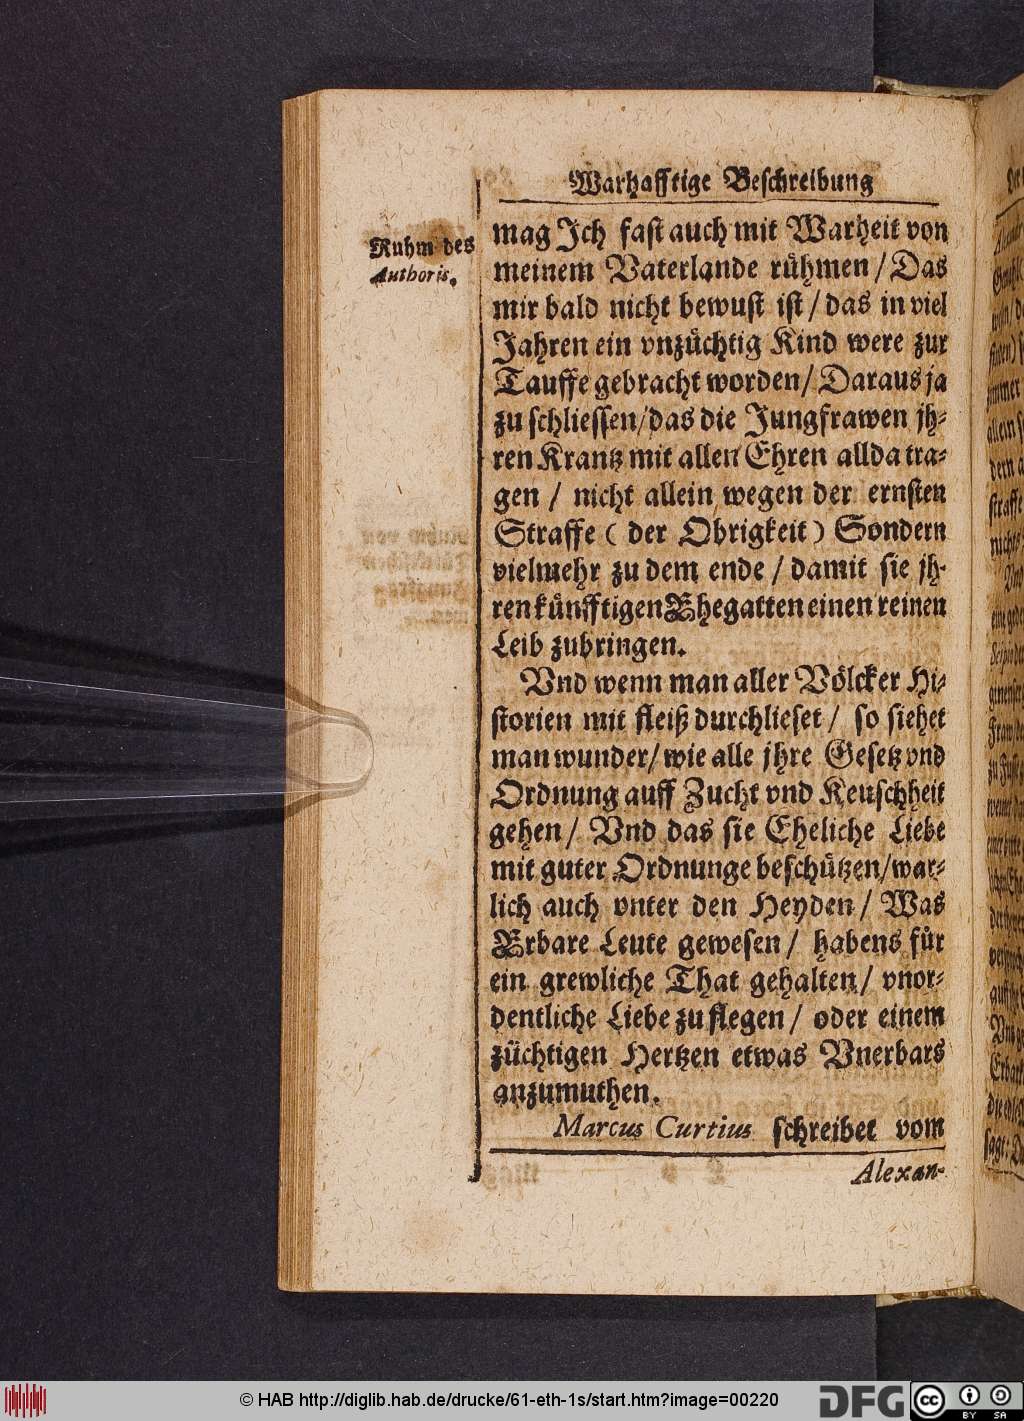 Warhafftige Beschreibung
Ruhm des
Authoris.
mag Ich fast auch mit Warheit von
meinem Vaterlande rühmen / Das
mir bald nicht bewust ist / das in viel
Jahren ein vnzüchtig Kind were zur
Tauffe gebracht worden / Daraus ja
zu schliessen / das die Jungfrawen jh-
ren Krantz mit allen Ehren allda tra-
gen / nicht allein wegen der ernsten
Straffe ( der Obrigkeit ) Sondern
vielmehr zu dem ende / damit sie jh-
ren künfftigen Ehegatten einen reinen
Leib zubringen.
Vnd wenn man aller Völcker Hi-
storien mit fleiß durchlieset / so siehet
man wunder / wie alle jhre Gesetz vnd
Ordnung auff Zucht vnd Keuschheit
gehen / Vnd das sie Eheliche Liebe
mit guter Ordnunge beschützen / war-
lich auch vnter den Heyden / Was
Erbare Leute gewesen / habens für
ein grewliche That gehalten / vnor-
dentliche Liebe zu flegen / oder einem
züchtigen Hertzen etwas Vnerbars
anzumuthen.
Marcus Curtius schreibet vom
Alexan-
© HAB http://diglib.hab.de/drucke/61-eth-1s/start.htm?image=00220
DFG
cc
BY SA